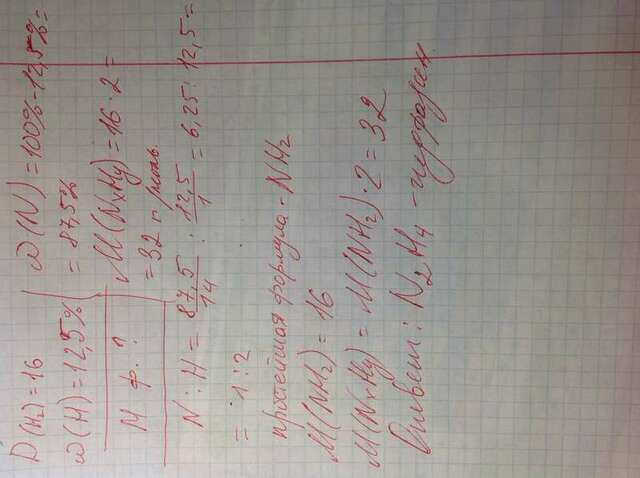 D(H₂) = 16
ω(H) = 12,5%
М.ф.?
ω(N) = 100% - 12,5% =
= 87,5%
M(NxHy) = 16 · 2 =
= 32 г/моль
N : H = 87,5/14 : 12,5/1 = 6,25 : 12,5 =
= 1 : 2
простейшая формула - NH₂
M(NH₂) = 16
M(NxHy) = M(NH₂) · 2 = 32
Ответ: N₂H₄ - гидразин